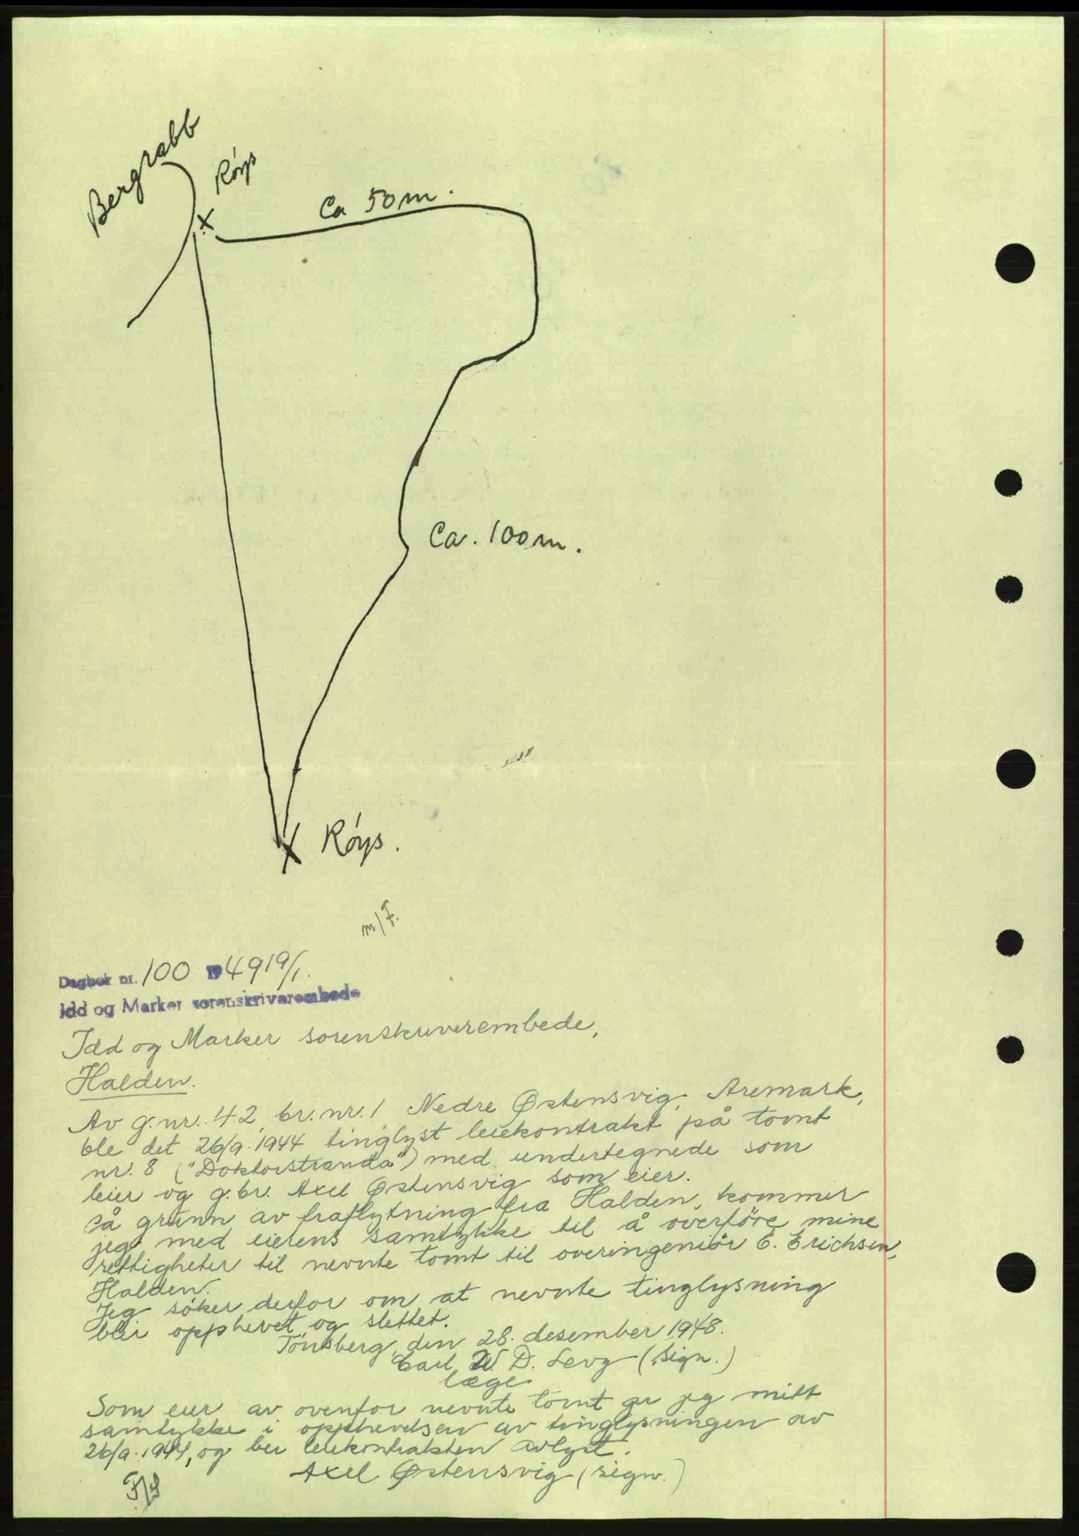 Bergrabb
Røys
Ca 50m.
Ca. 100m.
Røys.
m/F.
Dagbok nr. 100 1949 19/1.
Idd og Marker sorenskriverembede
Idd og Marker sorenskriverembede,
Halden.
Av g.nr. 42, br.nr. 1 Nedre Østensvig, Aremark,
ble det 26/9. 1944 tinglyst leiekontrakt på tomt
nr. 8 ("Doktorstranda") med undertegnede som
leier og g.br. Axel Østensvig som eier.
På grunn av fraflytning fra Halden, kommer
jeg med eierens samtykke til å overføre mine
rettigheter til nevnte tomt til overingeniør E. Erichsen,
Halden.
Jeg søker derfor om at nevnte tinglysning
blir opphevet og slettet.
Tønsberg, den 28. desember 1948.
Carl W. D. Levy (sign.)
læge
Som eier av ovenfor nevnte tomt gir jeg mitt
samtykke i opphevelsen av tinglysningen av
26/9. 1944, og ber leiekontrakten avlyst.
Axel Østensvig (sign.)